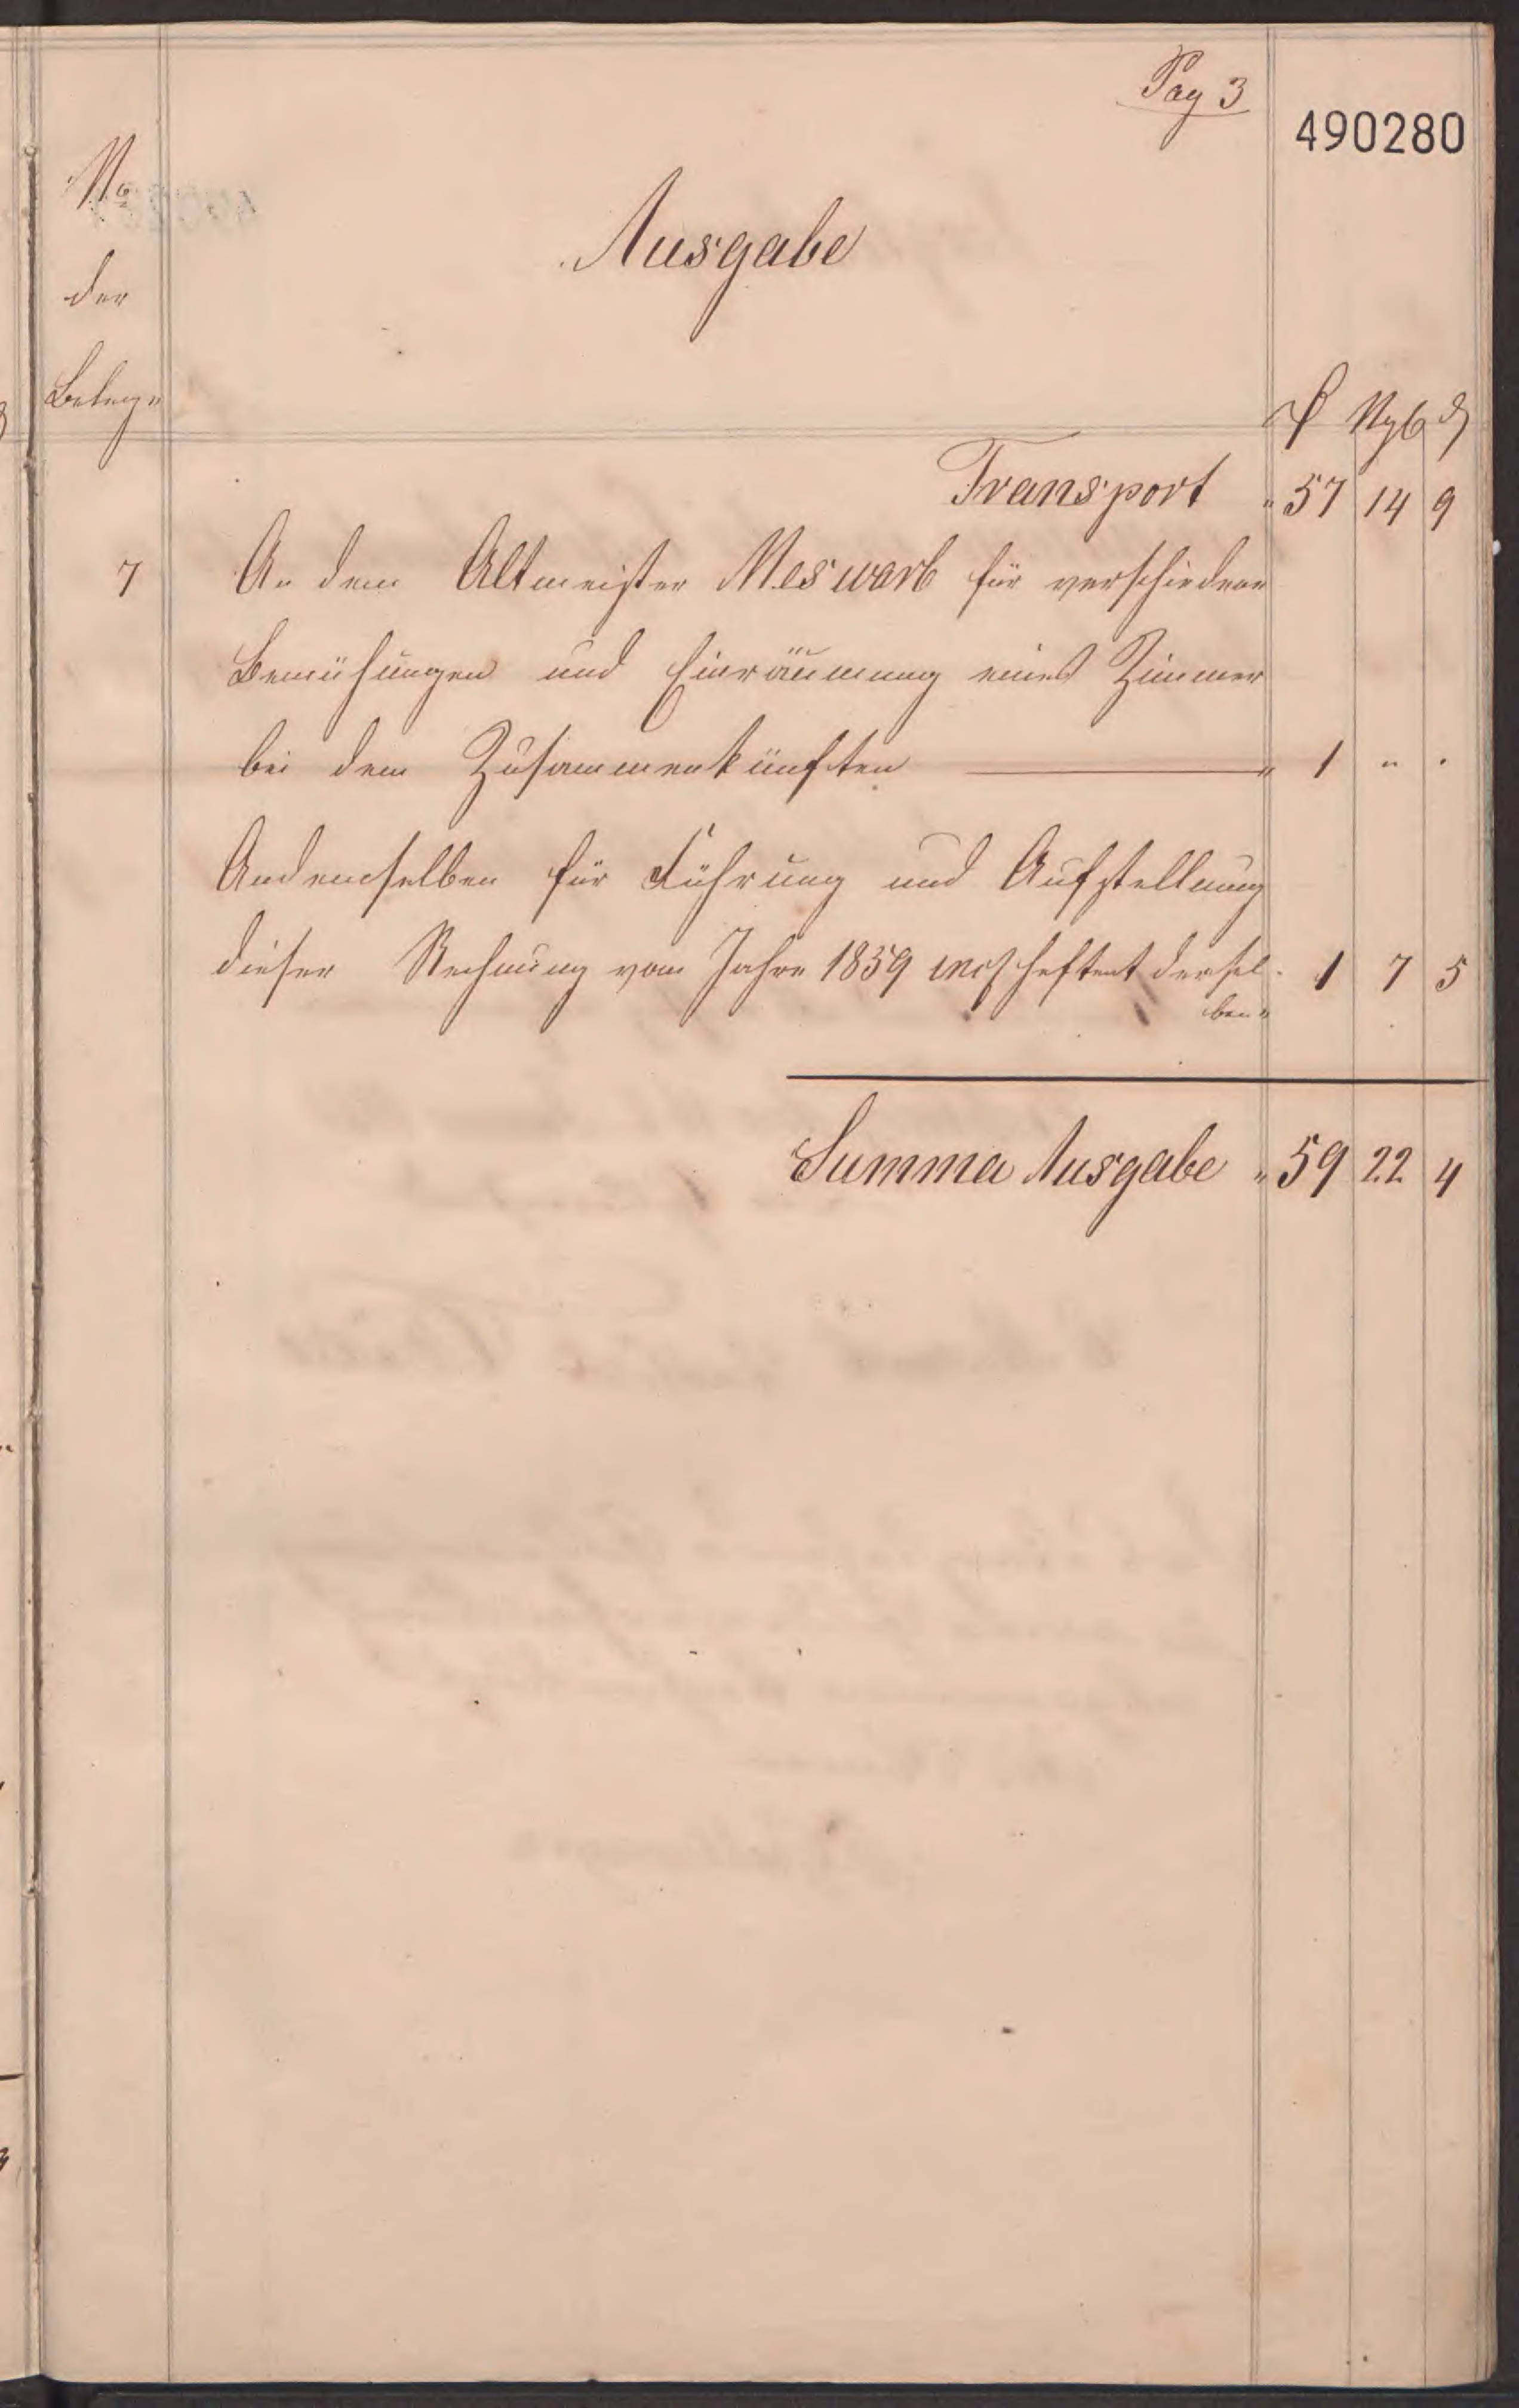 Pag 3
490280
No
der
Beleg"
Ausgabe
₰ Ngb ₰
Transport " 57 14 9
7 An dem Altmeister Meswarb für verschiedene
Bemühungen und Einräumung eines Zimmer
bei dem Zusammenkünften " 1 " "
Andemselben für Führung und Aufstellung
dieser Rechnung vom Jahre 1859 incl heftent dersel- 1 7 5
ben "
Summa Ausgabe " 59 22 4